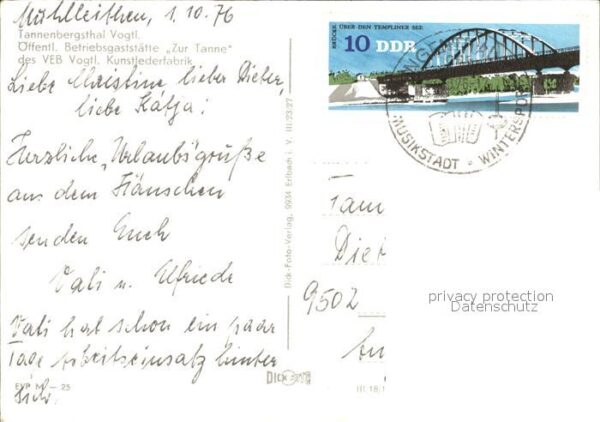 Mühlleithen, 1.10.76
Tannenbergsthal Vogtl.
Öffentl. Betriebsgaststätte „Zur Tanne"
des VEB Vogtl. Kunstlederfabrik
Liebe Christine, lieber Dieter
liebe Katja!
Herzliche „Urlaubs"grüße
aus dem Häuschen
senden Euch
Vati u. Elfriede
Vati hat schon ein paar
Tage Arbeitseinsatz hinter
sich.
EVP M –25
Dick-Foto-Verlag, 9934 Erlbach i. V. III/23/27
DICK
BRÜCKE ÜBER DEN TEMPLINER SEE
10 DDR
MUSIKSTADT • WINTERSPOR
Fam
Diet
9502
privacy protection
Datenschutz
III/18/